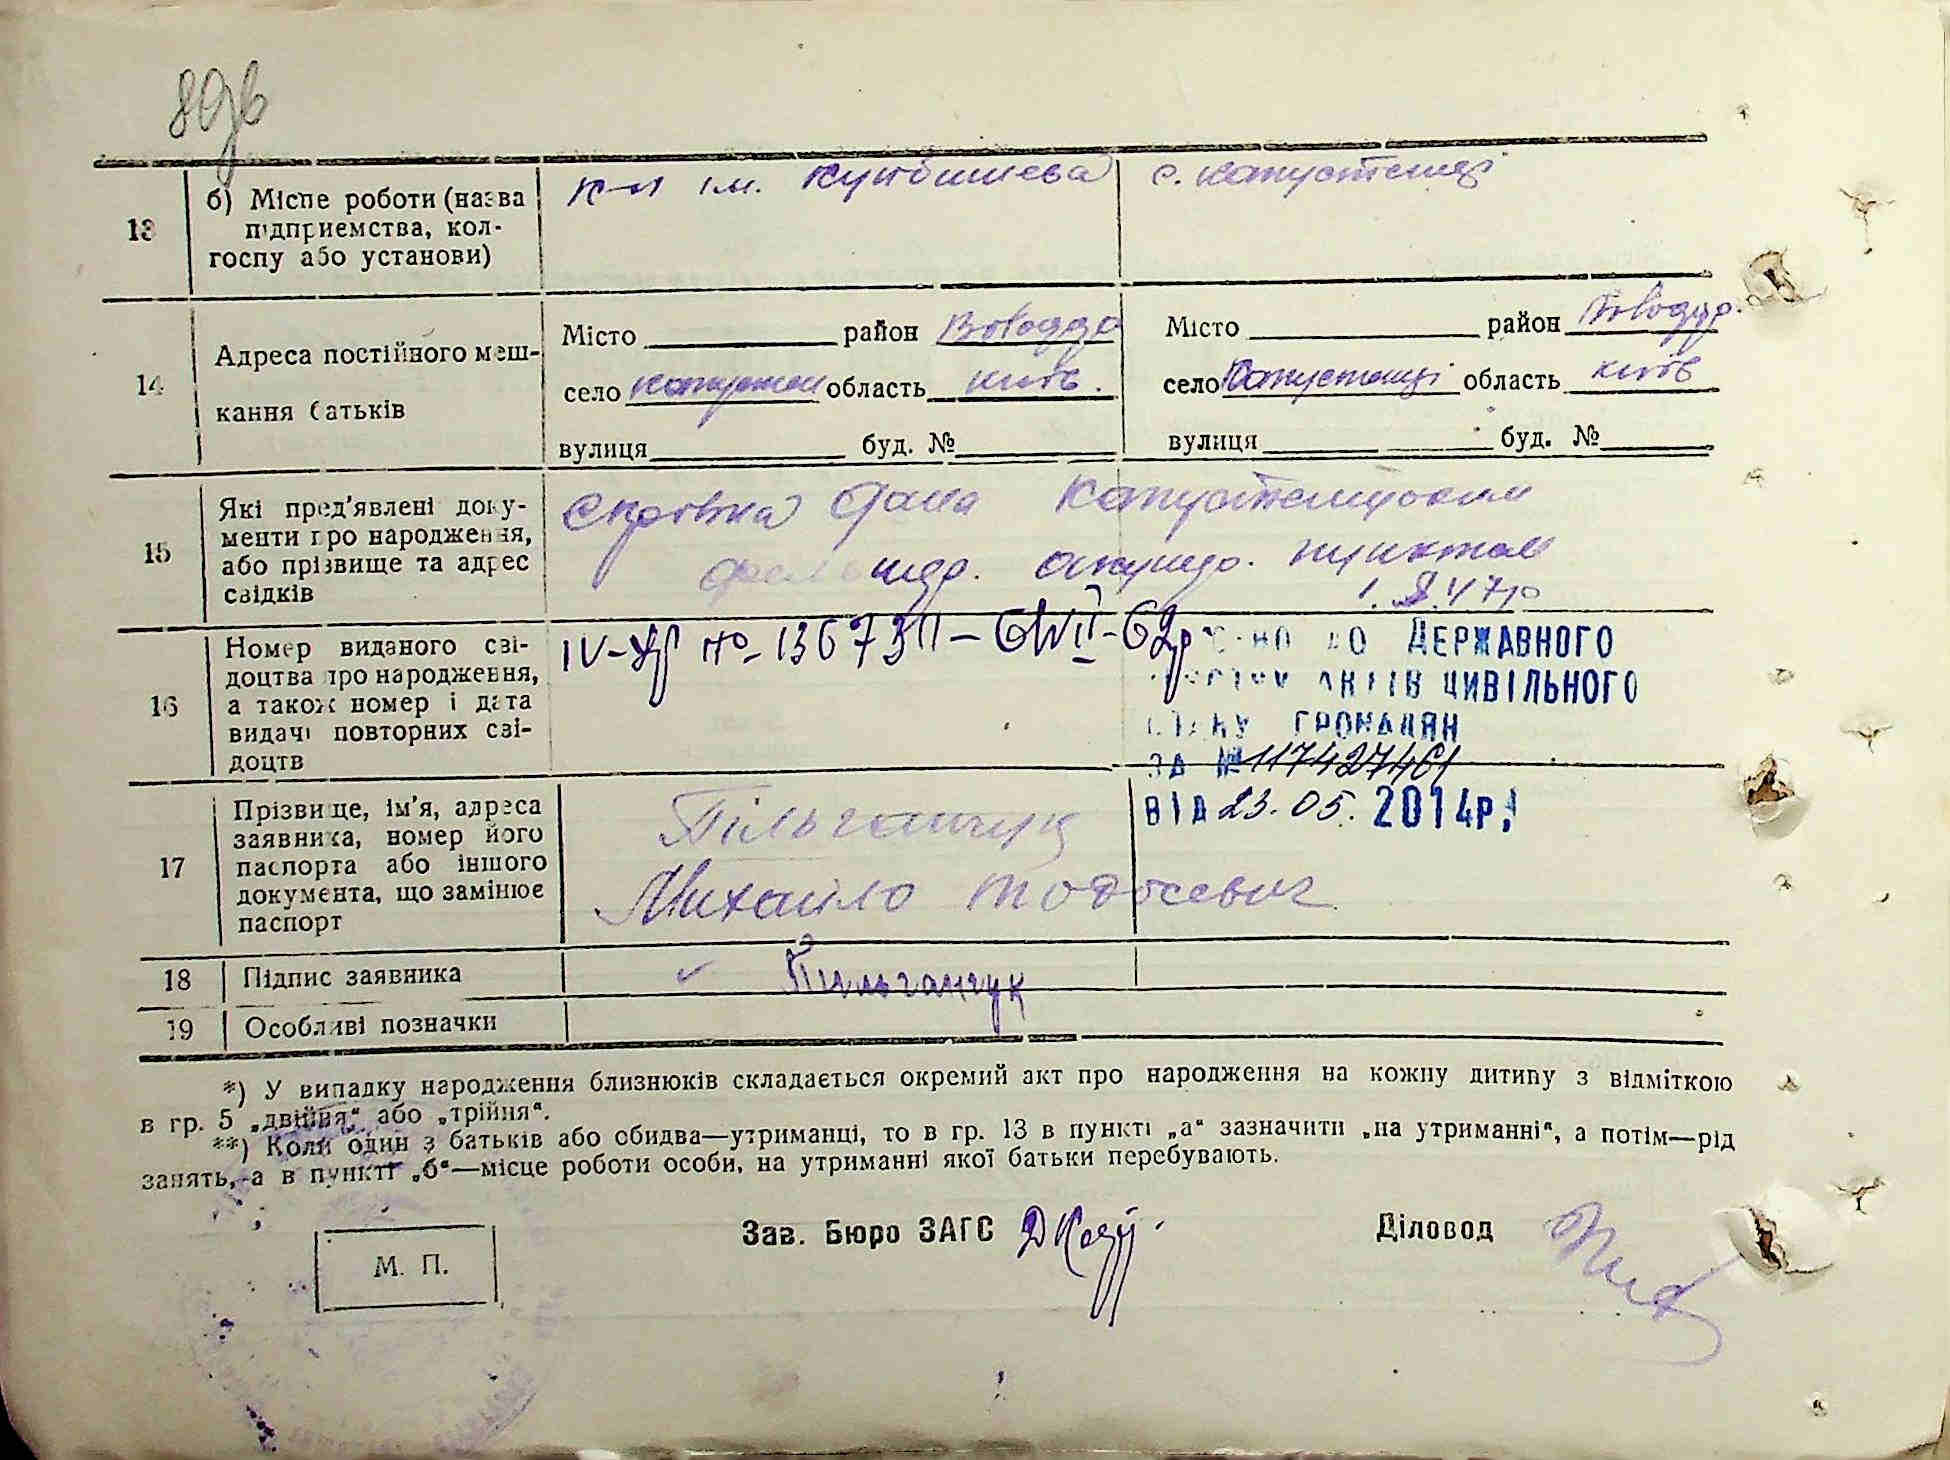 89зв
13
б) Місце роботи (назва
підприємства, кол-
госпу або установи)
к-п ім. Куйбишева
с. Капустенці
14
Адреса постійного меш-
кання батьків
Місто район Володар
село Капустен область Київ.
вулиця буд. №
Місто район Володар.
село Капустенці область Київ
вулиця буд. №
15
Які пред'явлені доку-
менти про народження,
або прізвище та адрес
свідків
Справка дана Капустенським
фельшдр. акушер. пунктом
47р
16
Номер виданого сві-
доцтва про народження,
а також номер і дата
видачі повторних сві-
доцтв
ДО ДЕРЖАВНОГО
АКТІВ ЦИВІЛЬНОГО
СТАНУ ГРОМАДЯН
ЗА № 117427461
ВІД 23.05. 2014р.
17
Прізвище, ім'я, адреса
заявника, номер його
паспорта або іншого
документа, що замінює
паспорт
Пільганчук
Михайло Тодосевич
18
Підпис заявника
Пильганчук
19
Особливі позначки
*) У випадку народження близнюків складається окремий акт про народження на кожну дитину з відміткою
в гр. 5 „двійня“ або „трійня“.
**) Коли один з батьків або обидва—утриманці, то в гр. 13 в пункті „а“ зазначити „на утриманні“, а потім—рід
занять, а в пункті „б“—місце роботи особи, на утриманні якої батьки перебувають.
М. П.
Зав. Бюро ЗАГС
Діловод